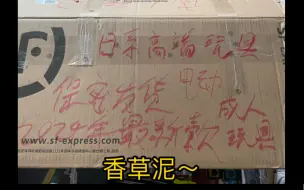 日系高端玩具
保密发货 电动
2024年最新款 成人
玩具
www.sf-express.com
香草泥～